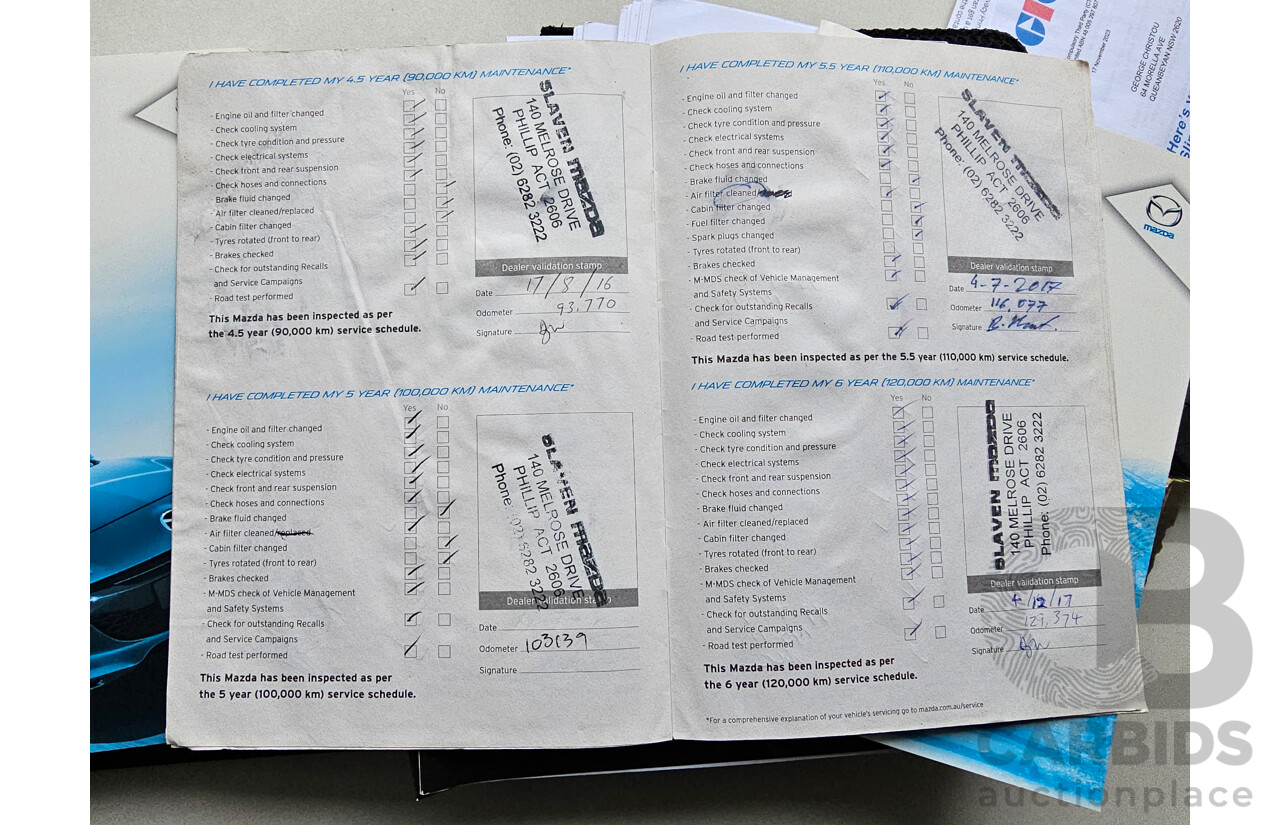 GEORGE CHRISTOU
64 MORELLA AVE
QUEANBEYAN NSW 2620
17 November 2023
Here's
mazda
I HAVE COMPLETED MY 4.5 YEAR (90,000 KM) MAINTENANCE*
Yes No
- Engine oil and filter changed
- Check cooling system
- Check tyre condition and pressure
- Check electrical systems
- Check front and rear suspension
- Check hoses and connections
- Brake fluid changed
- Air filter cleaned/replaced
- Cabin filter changed
- Tyres rotated (front to rear)
- Brakes checked
- Check for outstanding Recalls
and Service Campaigns
- Road test performed
This Mazda has been inspected as per
the 4.5 year (90,000 km) service schedule.
SLAVEN mazda
140 MELROSE DRIVE
PHILLIP ACT 2606
Phone: (02) 6282 3222
Dealer validation stamp
Date 17/8/16
Odometer 93,770
Signature
I HAVE COMPLETED MY 5 YEAR (100,000 KM) MAINTENANCE*
Yes No
- Engine oil and filter changed
- Check cooling system
- Check tyre condition and pressure
- Check electrical systems
- Check front and rear suspension
- Check hoses and connections
- Brake fluid changed
- Air filter cleaned/replaced
- Cabin filter changed
- Tyres rotated (front to rear)
- Brakes checked
- M-MDS check of Vehicle Management
and Safety Systems
- Check for outstanding Recalls
and Service Campaigns
- Road test performed
This Mazda has been inspected as per
the 5 year (100,000 km) service schedule.
SLAVEN mazda
140 MELROSE DRIVE
PHILLIP ACT 2606
Phone: (02) 6282 3222
Dealer validation stamp
Date
Odometer 103139
Signature
I HAVE COMPLETED MY 5.5 YEAR (110,000 KM) MAINTENANCE*
Yes No
- Engine oil and filter changed
- Check cooling system
- Check tyre condition and pressure
- Check electrical systems
- Check front and rear suspension
- Check hoses and connections
- Brake fluid changed
- Air filter cleaned
- Cabin filter changed
- Fuel filter changed
- Spark plugs changed
- Tyres rotated (front to rear)
- Brakes checked
- M-MDS check of Vehicle Management
and Safety Systems
- Check for outstanding Recalls
and Service Campaigns
- Road test performed
This Mazda has been inspected as per the 5.5 year (110,000 km) service schedule.
SLAVEN mazda
140 MELROSE DRIVE
PHILLIP ACT 2606
Phone: (02) 6282 3222
Dealer validation stamp
Date 4-7-2017
Odometer 116,077
Signature
I HAVE COMPLETED MY 6 YEAR (120,000 KM) MAINTENANCE*
Yes No
- Engine oil and filter changed
- Check cooling system
- Check tyre condition and pressure
- Check electrical systems
- Check front and rear suspension
- Check hoses and connections
- Brake fluid changed
- Air filter cleaned/replaced
- Cabin filter changed
- Tyres rotated (front to rear)
- Brakes checked
- M-MDS check of Vehicle Management
and Safety Systems
- Check for outstanding Recalls
and Service Campaigns
- Road test performed
This Mazda has been inspected as per
the 6 year (120,000 km) service schedule.
SLAVEN mazda
140 MELROSE DRIVE
PHILLIP ACT 2606
Phone: (02) 6282 3222
Dealer validation stamp
Date 4/12/17
Odometer 121,374
Signature
*For a comprehensive explanation of your vehicle's servicing go to mazda.com.au/service
CARBIDS
auctionplace